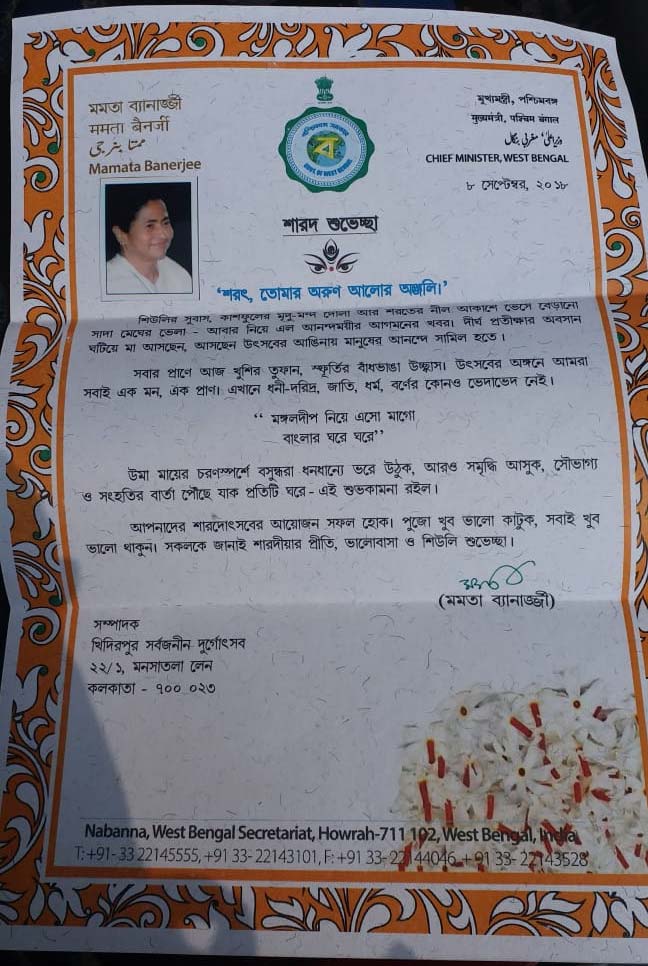 মমতা ব্যানার্জ্জী
ममता बैनर्जी
ممتا بنرجی
Mamata Banerjee
পশ্চিমবঙ্গ সরকার
ব
GOVT. OF WEST BENGAL
মুখ্যমন্ত্রী, পশ্চিমবঙ্গ
मुख्यमंत्री, पश्चिम बंगाल
وزیر اعلیٰ، مغربی بنگال
CHIEF MINISTER, WEST BENGAL
৮ সেপ্টেম্বর, ২০১৮
শারদ শুভেচ্ছা
‘শরৎ, তোমার অরুণ আলোর অঞ্জলি।’
শিউলির সুবাস, কাশফুলের মৃদু-মন্দ দোলা আর শরতের নীল আকাশে ভেসে বেড়ানো
সাদা মেঘের ভেলা – আবার নিয়ে এল আনন্দময়ীর আগমনের খবর। দীর্ঘ প্রতীক্ষার অবসান
ঘটিয়ে মা আসছেন, আসছেন উৎসবের আঙিনায় মানুষের আনন্দে সামিল হতে।
সবার প্রাণে আজ খুশির তুফান, স্ফূর্তির বাঁধভাঙা উচ্ছ্বাস। উৎসবের অঙ্গনে আমরা
সবাই এক মন, এক প্রাণ। এখানে ধনী-দরিদ্র, জাতি, ধর্ম, বর্ণের কোনও ভেদাভেদ নেই।
“ মঙ্গলদীপ নিয়ে এসো মাগো
বাংলার ঘরে ঘরে”
উমা মায়ের চরণস্পর্শে বসুন্ধরা ধনধান্যে ভরে উঠুক, আরও সমৃদ্ধি আসুক, সৌভাগ্য
ও সংহতির বার্তা পৌঁছে যাক প্রতিটি ঘরে – এই শুভকামনা রইল।
আপনাদের শারদোৎসবের আয়োজন সফল হোক। পুজো খুব ভালো কাটুক, সবাই খুব
ভালো থাকুন। সকলকে জানাই শারদীয়ার প্রীতি, ভালোবাসা ও শিউলি শুভেচ্ছা।
(মমতা ব্যানার্জ্জী)
সম্পাদক
খিদিরপুর সর্বজনীন দুর্গোৎসব
২২/১, মনসাতলা লেন
কলকাতা – ৭০০ ০২৩
Nabanna, West Bengal Secretariat, Howrah-711 102, West Bengal, India
T: +91- 33 22145555, +91 33- 22143101, F: +91 33- 22144046, + 91 33- 22143528